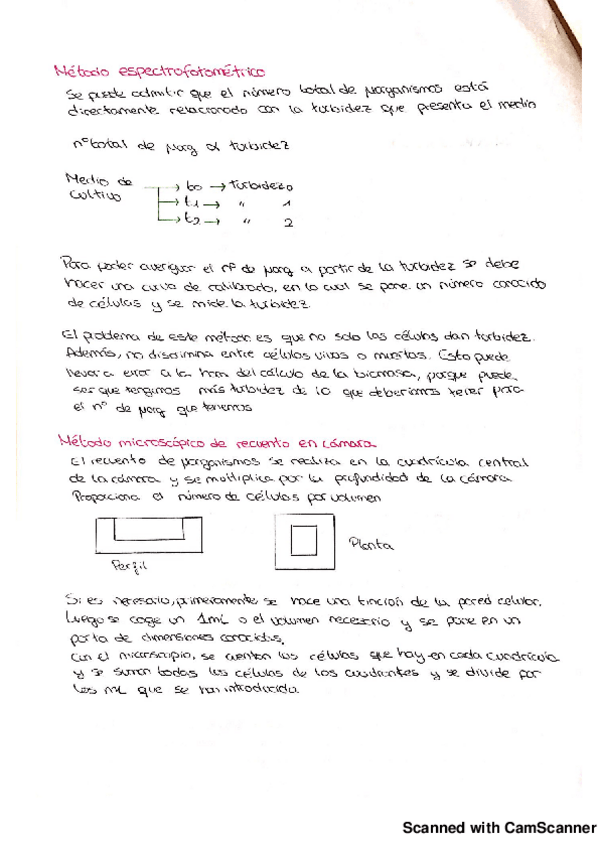 Método espectrofotométrico
Se puede admitir que el número total de µorganismos está
directamente relacionado con la turbidez que presenta el medio
nº total de µorg α turbidez
Medio de
cultivo
t0 → turbidez 0
t1 → " 1
t2 → " 2
Para poder averiguar el nº de µorg a partir de la turbidez se debe
hacer una curva de calibrado, en la cual se pone un número conocido
de células y se mide la turbidez.
El problema de este método es que no solo las células dan turbidez.
Además, no discrimina entre células vivas o muertas. Esto puede
llevar a error a la hora del cálculo de la biomasa, porque puede
ser que tengamos más turbidez de lo que deberíamos tener para
el nº de µorg que tenemos
Método microscópico de recuento en cámara
El recuento de µorganismos se realiza en la cuadrícula central
de la cámara y se multiplica por la profundidad de la cámara.
Proporciona el número de células por volumen
Perfil
Planta
Si es necesario, primeramente se hace una tinción de la pared celular.
Luego se coge un 1mL o el volumen necesario y se pone en un
porta de dimensiones conocidas.
Con el microscopio, se cuentan las células que hay en cada cuadrícula
y se suman todas las células de los cuadrantes y se divide por
los mL que se han introducido.
Scanned with CamScanner